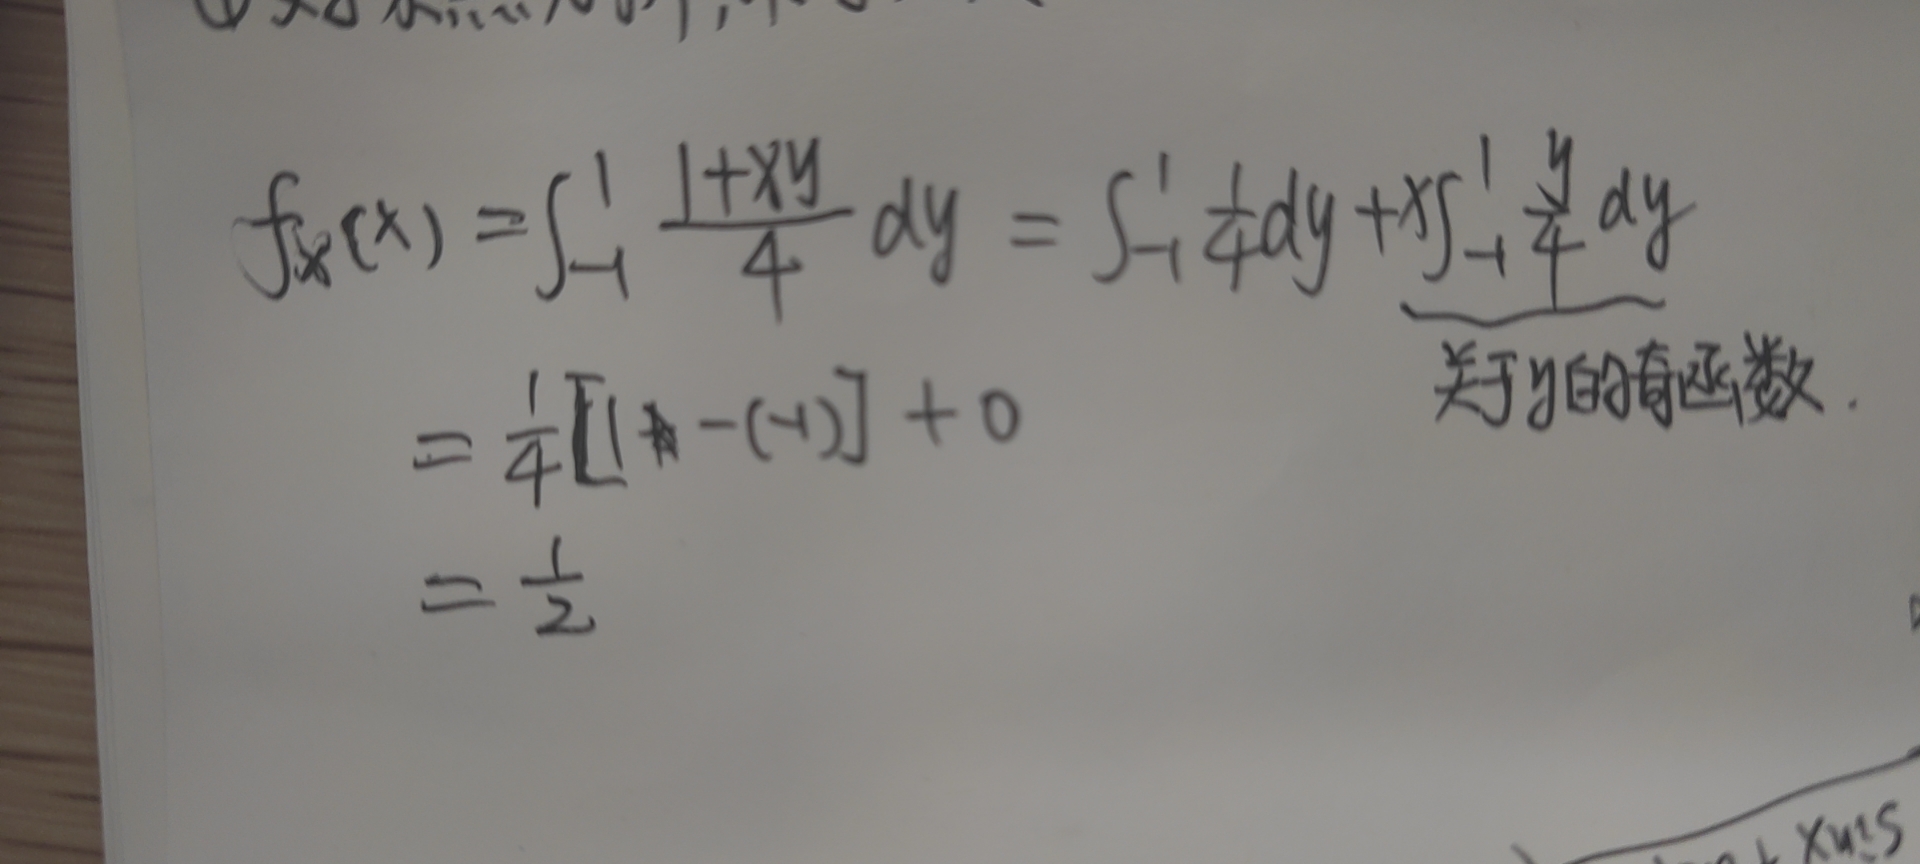 fx(x) = ∫_{-1}^{1} \frac{1+xy}{4} dy = ∫_{-1}^{1} \frac{1}{4} dy + x∫_{-1}^{1} \frac{y}{4} dy
关于y的奇函数.
= \frac{1}{4}[1-(-1)] + 0
= \frac{1}{2}
sinx